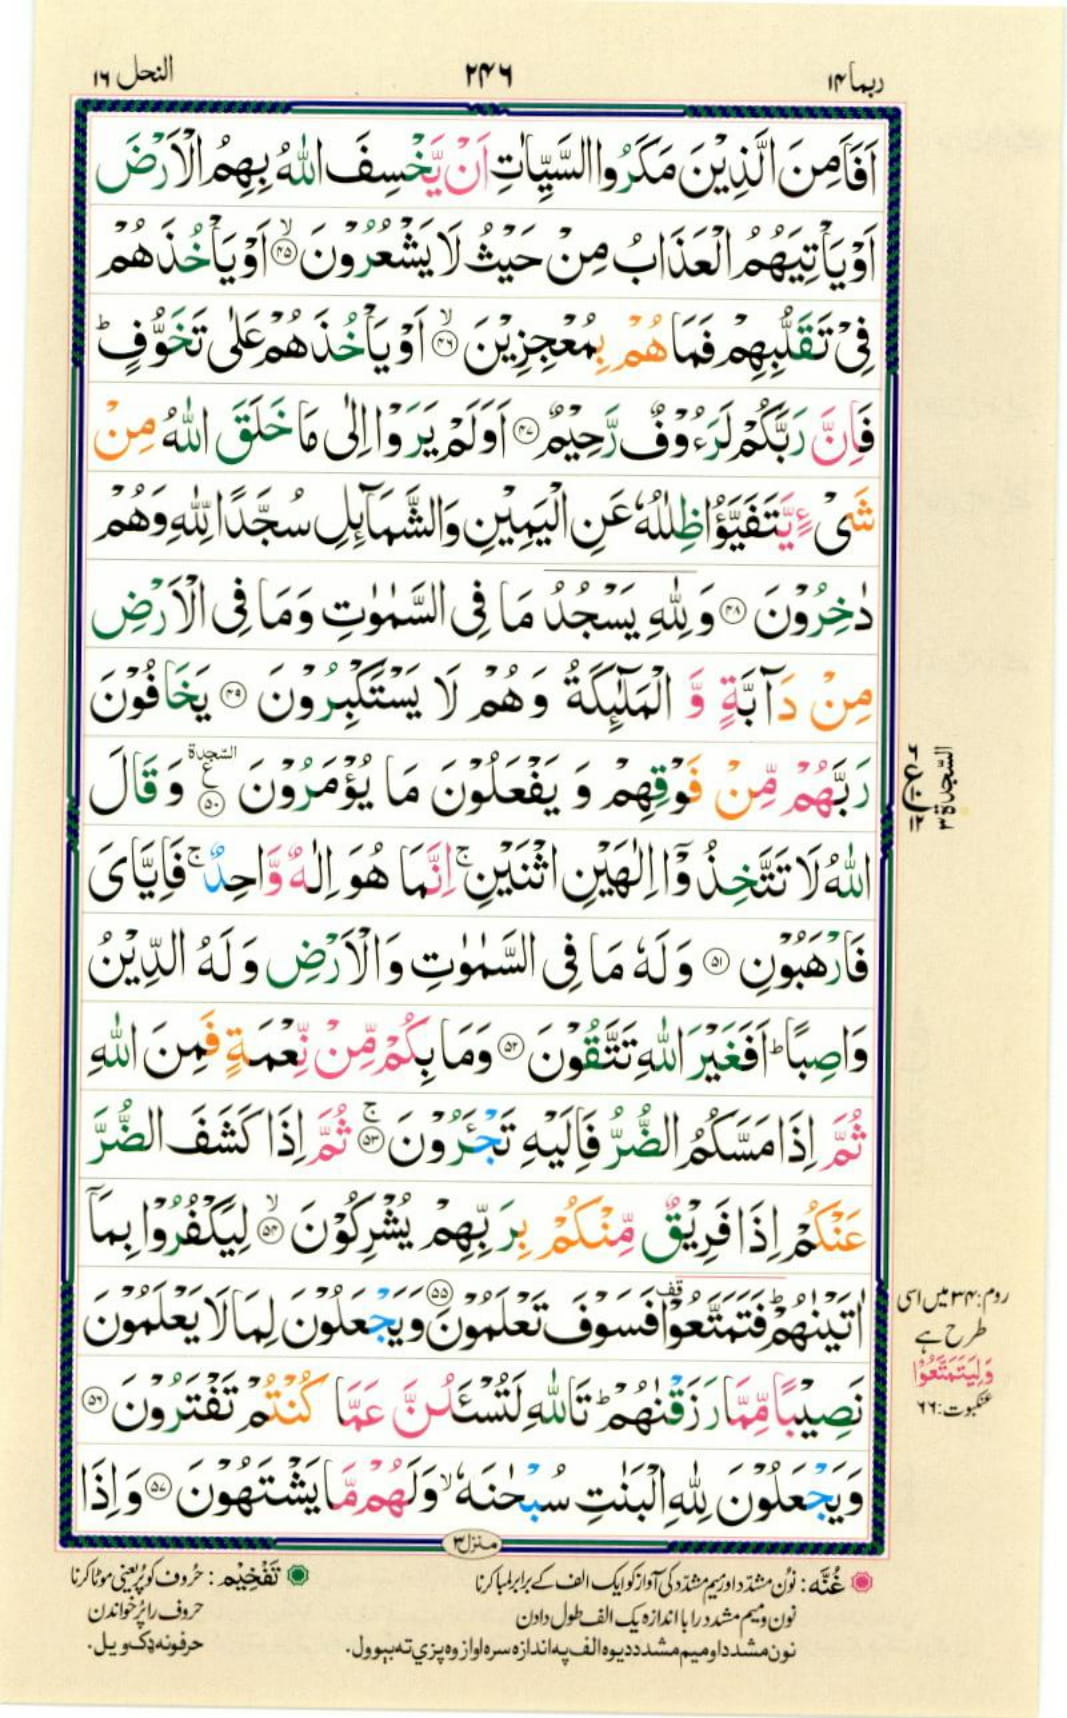 ربما ۱۴
۲۴۶
النحل ۱۶
اَفَاَمِنَ الَّذِيۡنَ مَكَرُوا السَّيِّاٰتِ اَنۡ يَّخۡسِفَ اللّٰهُ بِهِمُ الۡاَرۡضَ
اَوۡ يَاۡتِيَهُمُ الۡعَذَابُ مِنۡ حَيۡثُ لَا يَشۡعُرُوۡنَ ۙ‏﴿۴۵﴾ اَوۡ يَاۡخُذَهُمۡ
فِىۡ تَقَلُّبِهِمۡ فَمَا هُمۡ بِمُعۡجِزِيۡنَ ۙ‏﴿۴۶﴾ اَوۡ يَاۡخُذَهُمۡ عَلٰى تَخَوُّفٍ ؕ
فَاِنَّ رَبَّكُمۡ لَرَءُوۡفٌ رَّحِيۡمٌ ﴿۴۷﴾ اَوَلَمۡ يَرَوۡا اِلٰى مَا خَلَقَ اللّٰهُ مِنۡ
شَىۡءٍ يَّتَفَيَّؤُا ظِلٰلُهٗ عَنِ الۡيَمِيۡنِ وَالشَّمَآٮِٕلِ سُجَّدًا لِّلّٰهِ وَهُمۡ
دٰخِرُوۡنَ ﴿۴۸﴾ وَ لِلّٰهِ يَسۡجُدُ مَا فِى السَّمٰوٰتِ وَمَا فِى الۡاَرۡضِ
مِنۡ دَآبَّةٍ وَّ الۡمَلٰٓٮِٕكَةُ وَهُمۡ لَا يَسۡتَكۡبِرُوۡنَ ﴿۴۹﴾ يَخَافُوۡنَ
رَبَّهُمۡ مِّنۡ فَوۡقِهِمۡ وَ يَفۡعَلُوۡنَ مَا يُؤۡمَرُوۡنَ ۩ السجدة ﴿۵۰﴾ ع وَ قَالَ
السجدة ۳
۶ ع ۱۲
اللّٰهُ لَا تَتَّخِذُوۡۤا اِلٰهَيۡنِ اثۡنَيۡنِ ۚ اِنَّمَا هُوَ اِلٰـهٌ وَّاحِدٌ ۚ فَاِيَّاىَ
فَارۡهَبُوۡنِ ﴿۵۱﴾ وَ لَهٗ مَا فِى السَّمٰوٰتِ وَالۡاَرۡضِ وَ لَهُ الدِّيۡنُ
وَاصِبًا ؕ اَفَغَيۡرَ اللّٰهِ تَتَّقُوۡنَ ﴿۵۲﴾ وَمَا بِكُمۡ مِّنۡ نِّعۡمَةٍ فَمِنَ اللّٰهِ
ثُمَّ اِذَا مَسَّكُمُ الضُّرُّ فَاِلَيۡهِ تَجۡئَرُوۡنَ ۚ‏﴿۵۳﴾ ثُمَّ اِذَا كَشَفَ الضُّرَّ
عَنۡكُمۡ اِذَا فَرِيۡقٌ مِّنۡكُمۡ بِرَبِّهِمۡ يُشۡرِكُوۡنَ ۙ‏﴿۵۴﴾ لِيَكۡفُرُوۡا بِمَاۤ
اٰتَيۡنٰهُمۡ ؕ فَتَمَتَّعُوۡا قف فَسَوۡفَ تَعۡلَمُوۡنَ ﴿۵۵﴾ وَيَجۡعَلُوۡنَ لِمَا لَا يَعۡلَمُوۡنَ
روم:۳۴ میں اسی
طرح ہے
وَلِيَتَمَتَّعُوۡا
عنکبوت:۶۶
نَصِيۡبًا مِّمَّا رَزَقۡنٰهُمۡ ؕ تَاللّٰهِ لَتُسۡئَلُنَّ عَمَّا كُنۡتُمۡ تَفۡتَرُوۡنَ ﴿۵۶﴾
وَيَجۡعَلُوۡنَ لِلّٰهِ الۡبَنٰتِ سُبۡحٰنَهٗ ۙ وَلَهُمۡ مَّا يَشۡتَهُوۡنَ ﴿۵۷﴾ وَ اِذَا
منزل ۳
غُنَّه: نون مشدّد اور میم مشدّد کی آواز کو ایک الف کے برابر لمبا کرنا
نون و میم مشدد را با اندازه یک الف طول دادن
نون مشدد او میم مشدد دیوه الف په اندازه سره اواز وه پزې ته بیوول.
تَفْخِیْم: حُروف کو پُر یعنی موٹا کرنا
حروف را پُر خواندن
حرفونه ډک ویل.